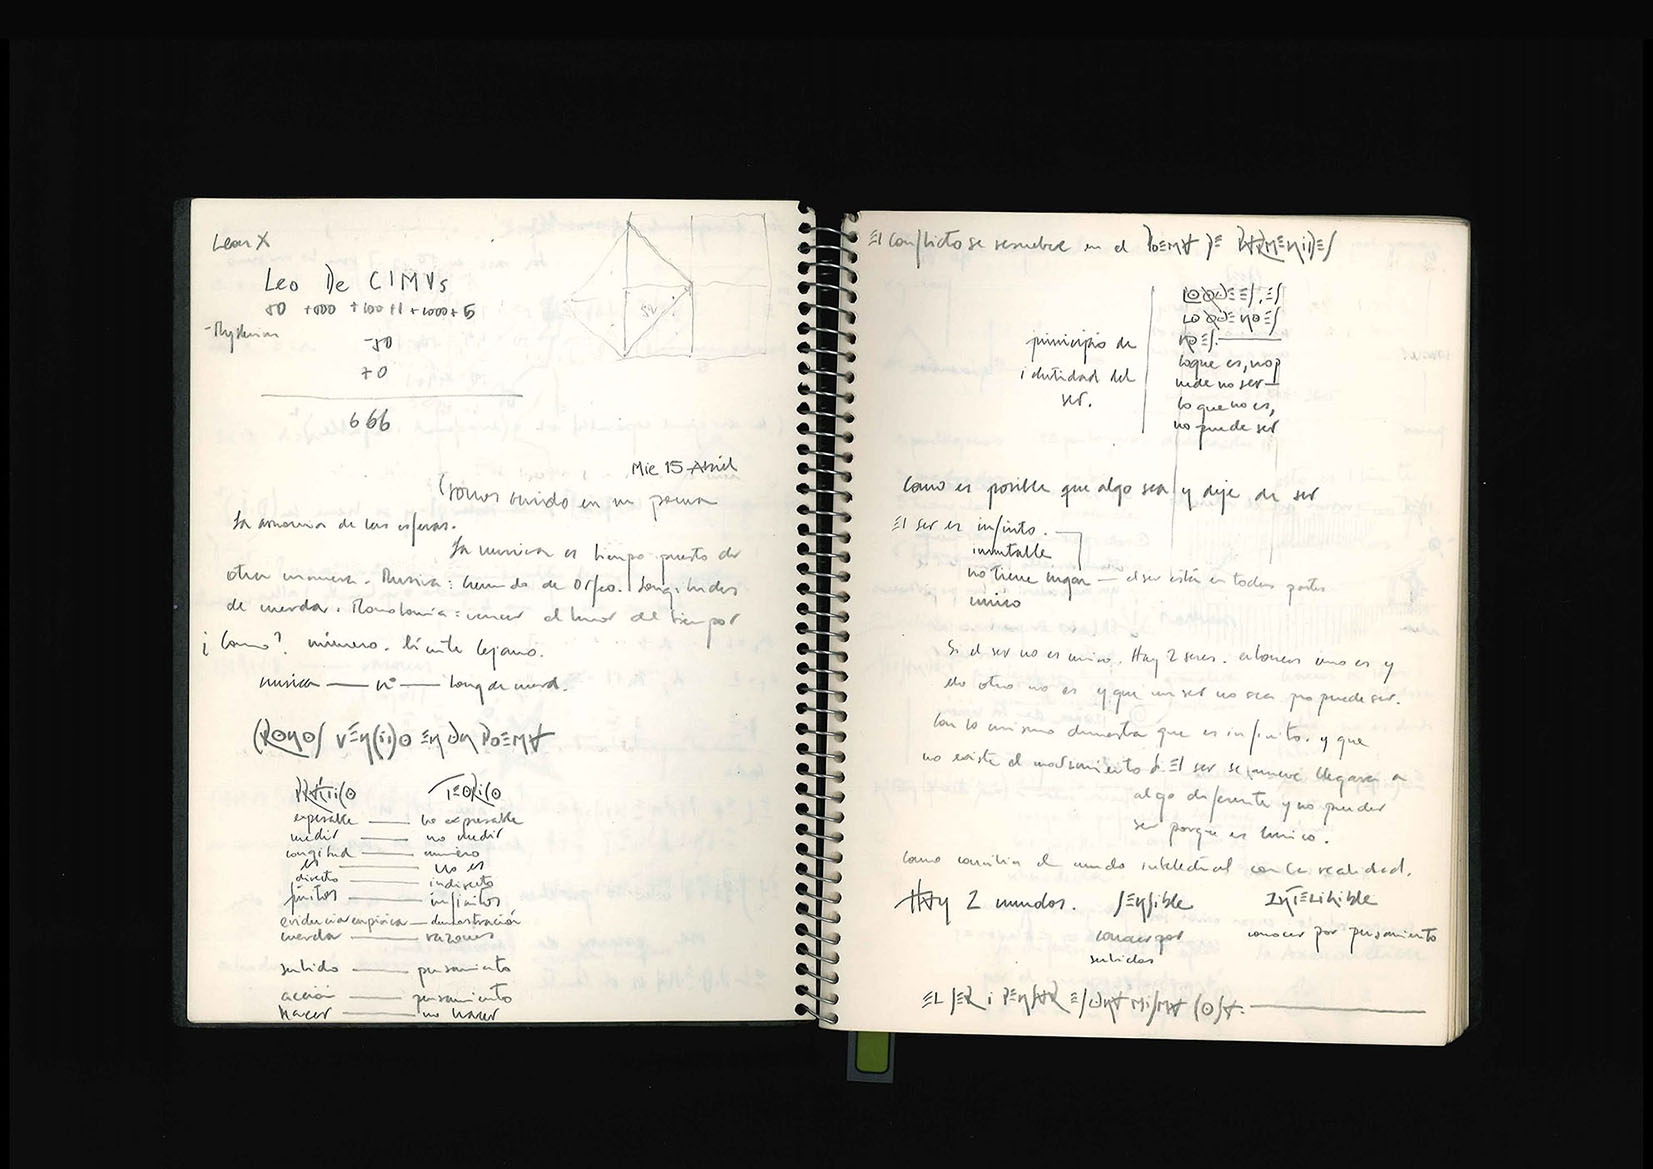 Leon X
Leo De CIMVs
50 +500 +100+1+1000+5
-Mysterium
-50
+0
666
Mie 15 Abril
Cronos vencido en un poema
La armonia de las esferas.
La musica es tiempo puesto de
otra manera. Musica: hermando de Orfeo. Longitudes
de cuerdas. Monotonía: vencer el tiempo
¿Como? número. límite lejano.
musica — nº — long de cuerd.
CRONOS VENCIDO EN UN POEMA
PRÁTICO TEORICO
expresable — no expresable
medir — no medir
longitud — numero
es — no es
directo — indirecto
finitos — infinitos
evidencia empirica — demostración
cuerdas — razones
sentido — pensamiento
acción — pensamiento
hacer — no hacer
El conflicto se resuelve en el POEMA DE PARMENIDES
LO QUE ES, ES
LO QUE NO ES
NO ES.
principio de
identidad del
ser.
lo que es, no p
uede no ser
lo que no es,
no puede ser
Como es posible que algo sea y deje de ser
El ser es infinito.
inmutable
no tiene lugar — el ser está en todas partes
unico
Si el ser no es unico. Hay 2 seres. entonces uno es y
el otro no es y que un ser no sea no puede ser.
Con lo mismo demuestra que es infinito. y que
no existe el movimiento El ser se mueve llegaria a
algo diferente y no puede
ser porque es unico.
Como concilia el mundo intelectual con la realidad.
Hay 2 mundos. SENSIBLE INTELIGIBLE
conocer por conocer por pensamiento
sentidos
EL SER i PENSAR ES UNA MISMA COSA.